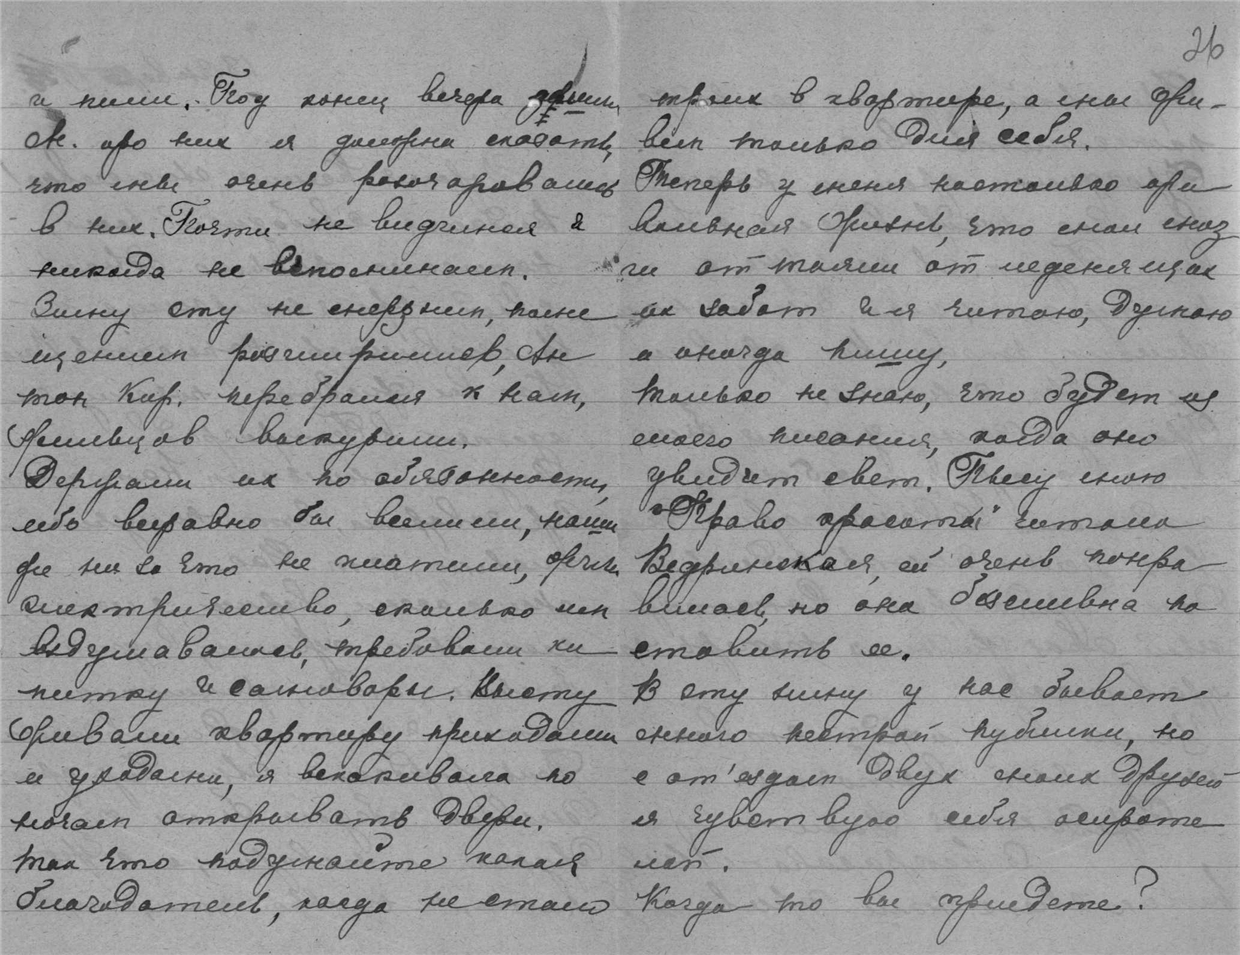 и пили. Под конец вечера
М. про них я должна сказать,
что мы очень разочаровались
в них. Почти не видимся и
никогда не вспоминаем.
Зиму эту не мерзнем, поме
щением расширились, Ан
тон Кар. перебрался к нам,
жильцов выкурили.
Держали их по обязанности,
ибо всеравно бы вселили, наши
же ни за что не платили, жгли
электричество, сколько им
вздумавалось, требовали ки
питку и самовары. Высту
живали квартиру приходили
и уходили, я вскакивала по
ночам открывать двери.
так что подумайте какая
благодатель, когда не стало
26
троих в квартире, а мы жи-
вем только для себя.
Теперь у меня настолько при
вольная жизнь, что мои моз
ги оттаяли от леденящих
их забот и я читаю, думаю
и иногда пишу,
только не знаю, что будет из
моего писания, когда оно
увидит свет. Пьесу мою
"Право красоты" читала
Ведринская, ей очень понра
вилась, но она бессильна по
ставить ее.
В эту зиму у нас бывает
много пестрой публики, но
с от'ездом двух моих друзей
я чувствую себя осироте
лой.
Когда то вы приедете?